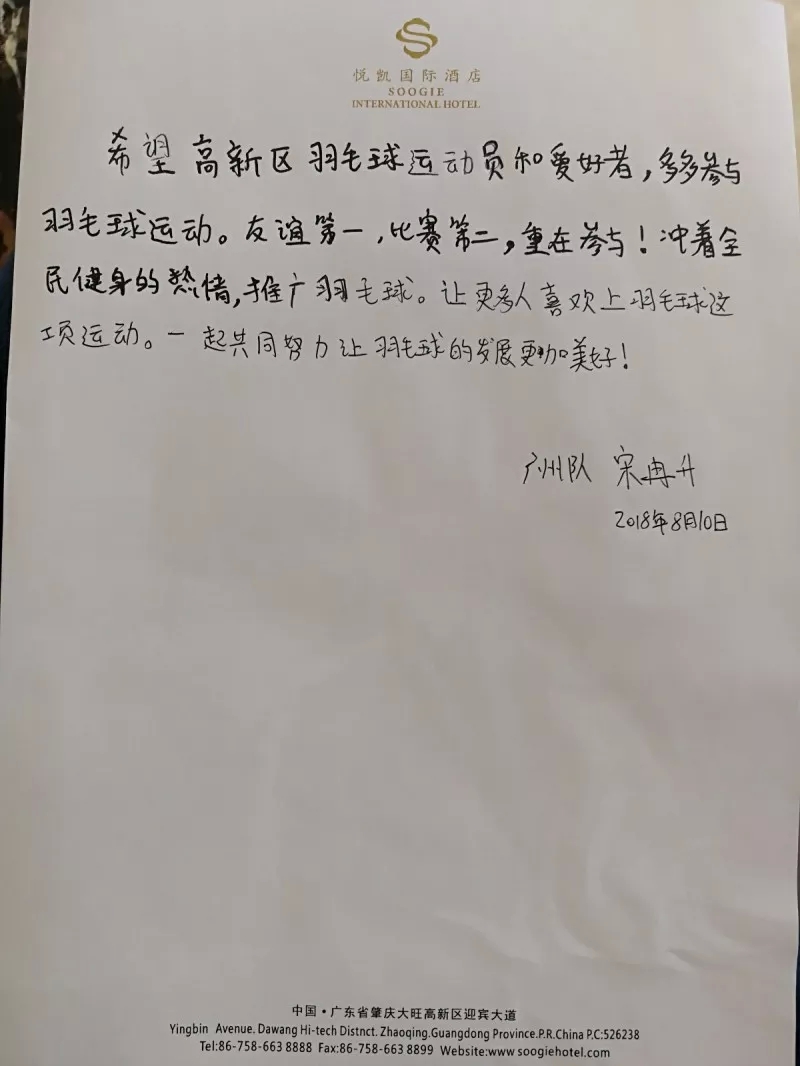 悦凯国际酒店
SOOGIE
INTERNATIONAL HOTEL
希望高新区羽毛球运动员和爱好者,多多参与
羽毛球运动。友谊第一,比赛第二,重在参与!冲着全
民健身的热情,推广羽毛球。让更多人喜欢上羽毛球这
项运动。一起共同努力让羽毛球的发展更加美好!
广州队 宋冉升
2018年8月10日
中国·广东省肇庆大旺高新区迎宾大道
Yingbin Avenue. Dawang Hi-tech Distnct. Zhaoqing.Guangdong Province.P.R.China P.C:526238
Tel:86-758-663 8888 Fax:86-758-663 8899 Website:www.soogiehotel.com